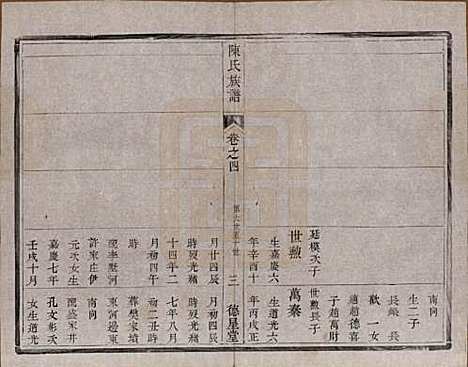 南向
生二子
長緘 長
歡 一女
適趙德喜
子趙萬財
廷模次子 世勲長子
世勲 萬秦
生嘉慶六 生道光六
年辛酉十 年丙戌正
月廿四辰 月初四辰
時歿光緒 時歿光緒
十四年二 七年八月
月初四午 初二丑時
時 葬樊家墳
配李墅河 東河邊東
許家庄伊 南向
氏生 配盛家井
嘉慶七年 孔文彬次
壬戌十月 女生道光
陳氏族譜
卷之四
三
德星堂